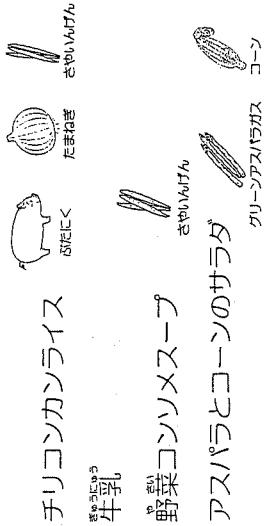 チリコンカンライス
ぶたにく
たまねぎ
さやいんげん
ぎゅうにゅう
牛乳
やさい
野菜コンソメスープ
さやいんげん
アスパラとコーンのサラダ
グリーンアスパラガス
コーン